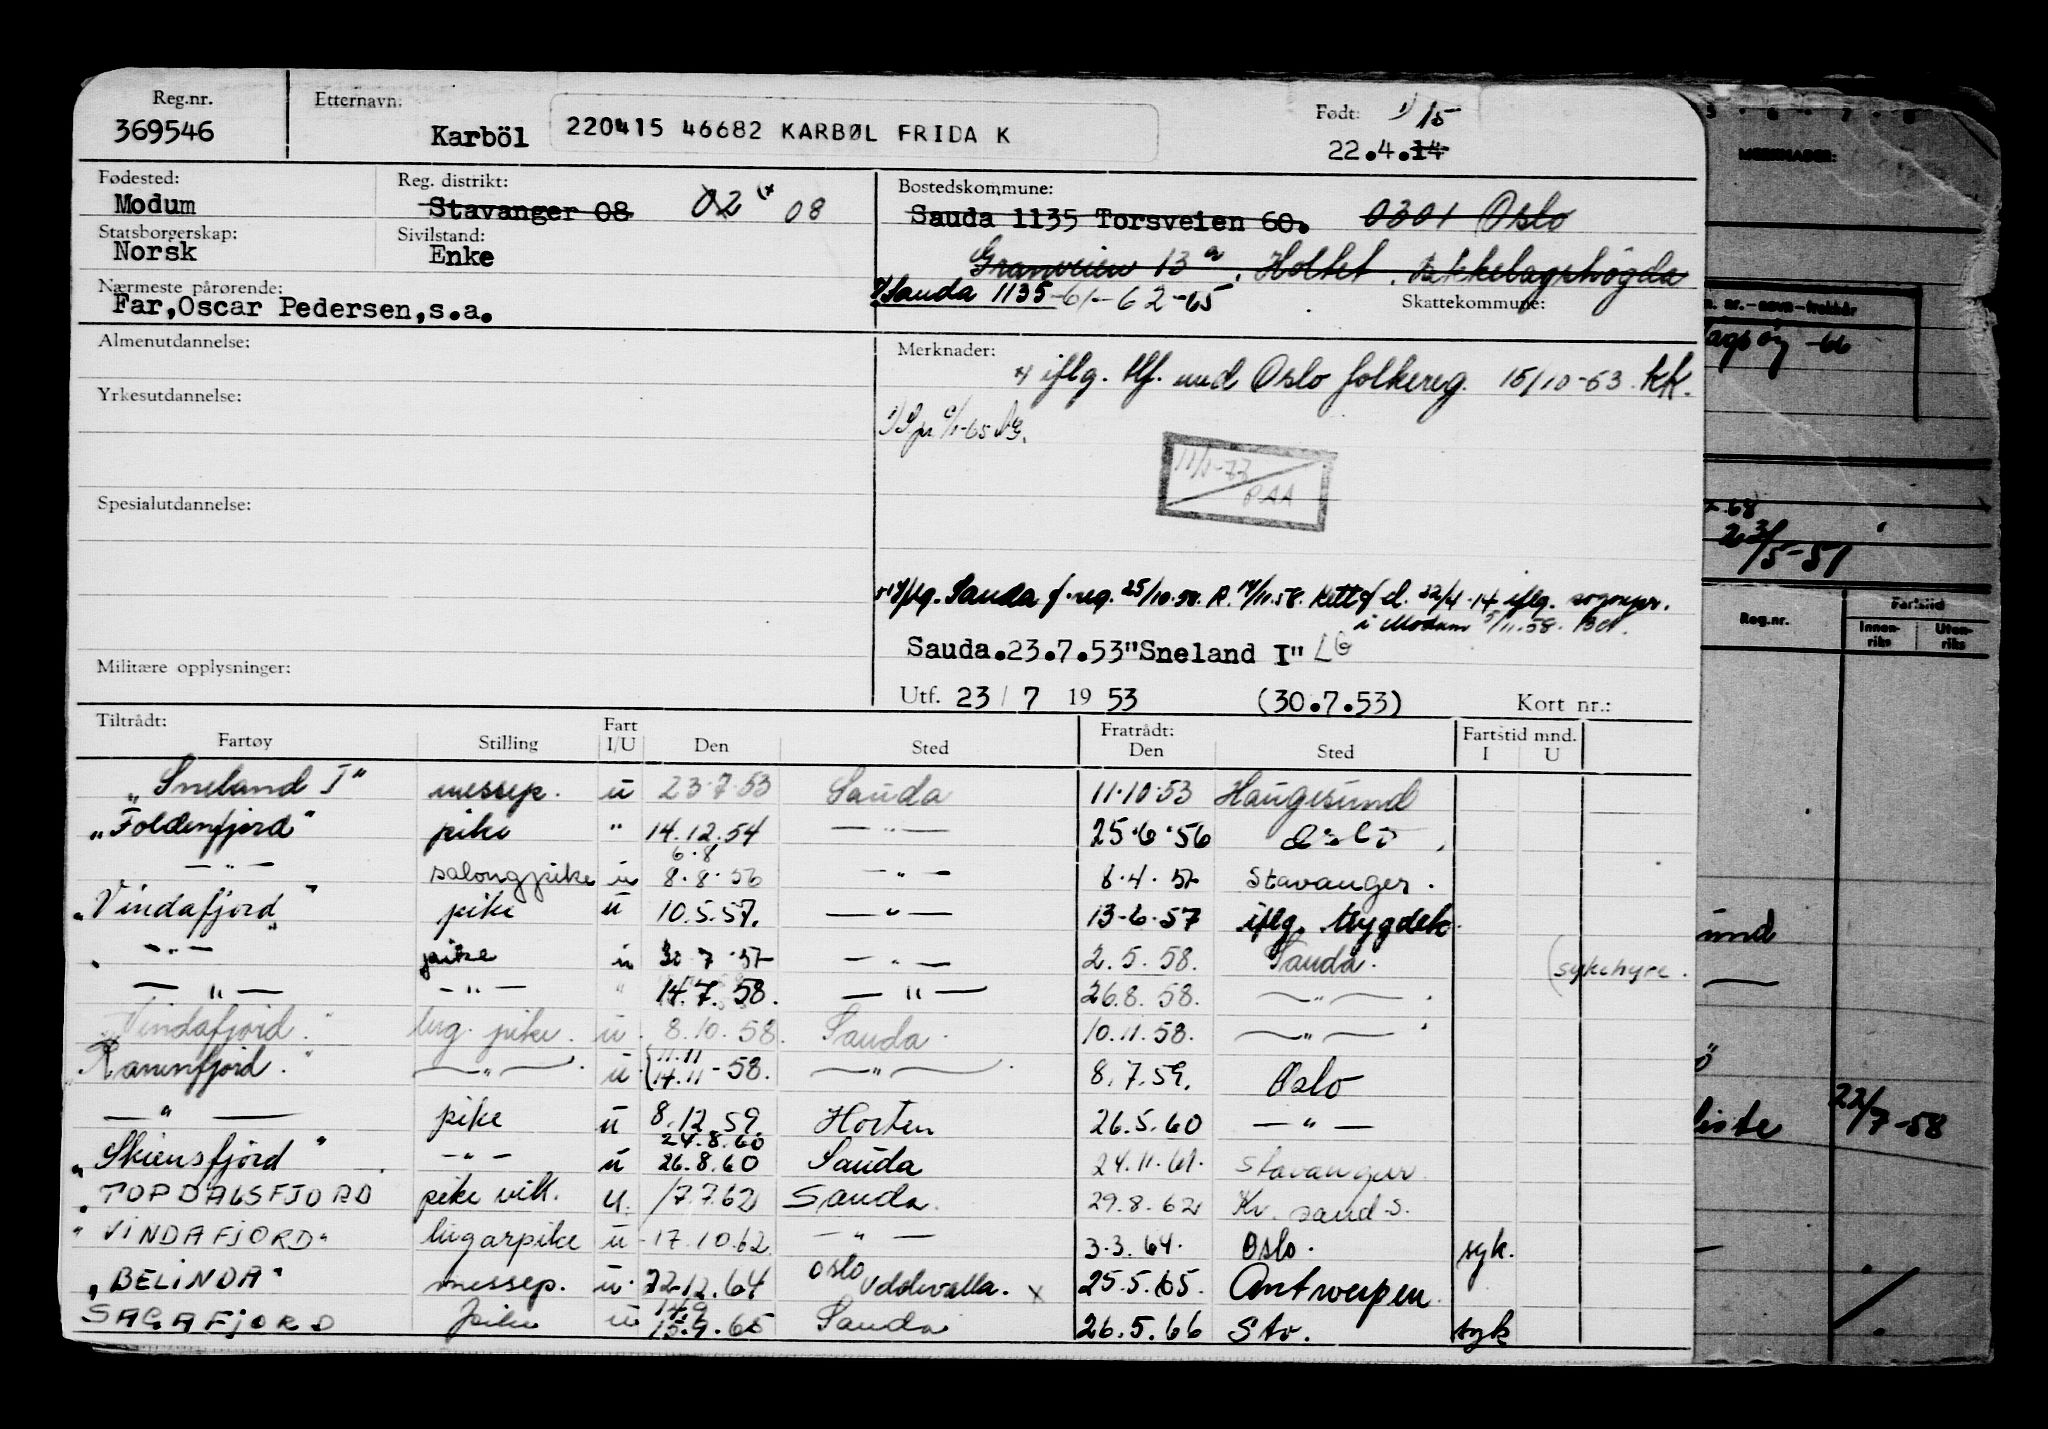 Reg.nr. Etternavn: Født: 1) 15
369546 Karböl 220415 46682 KARBØL FRIDA K 22.4.14
Fødested: Reg. distrikt: Bostedskommune:
Modum Stavanger 08 02 08 Sauda 1135 Torsveien 60. 0301 Oslo
Statsborgerskap: Sivilstand:
Norsk Enke Granveien 13 a, Holtet, Bekkelagshøgda
Nærmeste pårørende: Sauda 1135 -61-62-65 Skattekommune:
Far,Oscar Pedersen,s.a.
Almenutdannelse: Merknader:
iflg. tlf. med Oslo folkereg. 15/10-63. KK.
Yrkesutdannelse:
11/1-73
RAA
Spesialutdannelse:
iflg. Sauda f.reg. 25/10.58. R. 14/11.58. Rett f d. 22/4-14 iflg. sognepr.
i Modum 5/11.58.
Sauda.23.7.53"Sneland I" LG
Militære opplysninger:
Utf. 23 / 7 19 53 (30.7.53) Kort nr.:
Tiltrådt: Fart Fratrådt: Fartstid mnd.
Fartøy Stilling I/U Den Sted Den Sted I U
"Sneland I" messep. u 23.7.53 Sauda 11.10.53 Haugesund
"Foldenfjord" pike " 14.12.54 — " — 25.6.56 Oslo
6.8
— " — salongpike u 8.8.56 — " — 8.4.57 Stavanger.
"Vindafjord" pike u 10.5.57. — " — 13-6-57 iflg. trygdek.
— " — pike u 30 7.57 — " — 2.5.58. Sauda. (sykehyre.
— " — — " — " 14.7.58. — " — 26.8.58. — " —
"Vindafjord." lug. pike. u. 8.10.58 Sauda. 10.11.58. — " —
"Ranenfjord." — " — u. (11.11 14.11-58. — " — 8.7.59. Oslo
— " — pike u 8.12.59. Horten 26.5.60 — " —
24.8.60
"Skiensfjord" — " — u 26.8.60 Sauda 24.11.61. Stavanger
"TOPDALSFJORD pike vik. u. 17.7.62 Sauda. 29.8.62 Kr. sand S.
"VINDAFJORD" lugarpike u 17.10.62 — " — 3.3.64. Oslo. syk.
"BELINDA" messep. u. 22.12.64 Oslo Uddevalla. x 25.5.65. Antwerpen
14.9
SAGAFJORD pike u 15.9.65 Sauda 26.5.66 Sto. syk
5 · 6 · 7 · 8
MERKNADER:
-66
68
23/5-51
Reg.nr. Fartstid
Innen-riks Uten-riks
und
22/7-58